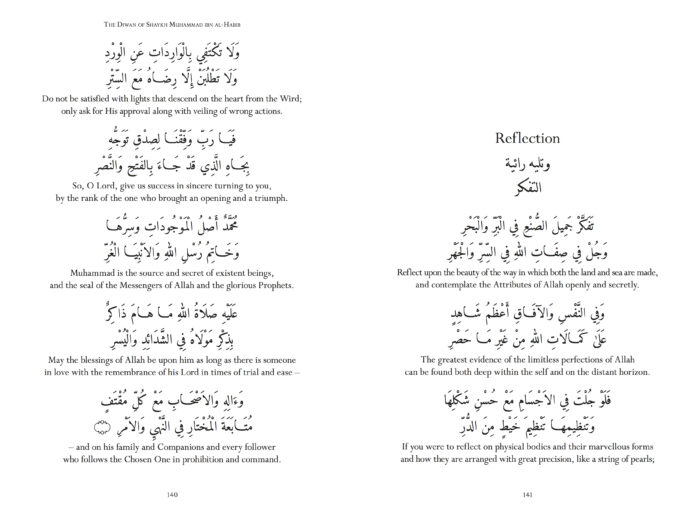 THE DIWAN OF SHAYKH MUHAMMAD IBN AL-HABIB
وَلَا تَكْتَفِي بِالْوَارِدَاتِ عَنِ الْوِرْدِ
وَلَا تَطْلُبَنْ إِلَّا رِضَاهُ مَعَ السِّتْرِ
Do not be satisfied with lights that descend on the heart from the Wird;
only ask for His approval along with veiling of wrong actions.
فَيَا رَبِّ وَفِّقْنَا لِصِدْقِ تَوَجُّهٍ
بِجَاهِ الَّذِي قَدْ جَاءَ بِالْفَتْحِ وَالنَّصْرِ
So, O Lord, give us success in sincere turning to you,
by the rank of the one who brought an opening and a triumph.
مُحَمَّدٌ أَصْلُ الْمَوْجُودَاتِ وَسِرُّهَا
وَخَاتِمُ رُسْلِ اللهِ وَالَانْبِيَا الْغُرِّ
Muhammad is the source and secret of existent beings,
and the seal of the Messengers of Allah and the glorious Prophets.
عَلَيْهِ صَلَاةُ اللهِ مَا هَامَ ذَاكِرٌ
بِذِكْرِ مَوْلَاهُ فِي الشَّدَائِدِ وَالْيُسْرِ
May the blessings of Allah be upon him as long as there is someone
in love with the remembrance of his Lord in times of trial and ease –
وَءَالِهِ وَالَاصْحَابِ مَعَ كُلِّ مُقْتَفٍ
مُتَابَعَةَ الْمُخْتَارِ فِي النَّهْيِ وَالَامْرِ
– and on his family and Companions and every follower
who follows the Chosen One in prohibition and command.
140
Reflection
وتليه رائية
التفكر
تَفَكَّرْ جَمِيلَ الصُّنْعِ فِي الْبَرِّ وَالْبَحْرِ
وَجُلْ فِي صِفَاتِ اللهِ فِي السِّرِّ وَالْجَهْرِ
Reflect upon the beauty of the way in which both the land and sea are made,
and contemplate the Attributes of Allah openly and secretly.
وَفِي النَّفْسِ وَالْآفَاقِ أَعْظَمُ شَاهِدٍ
عَلَى كَمَالَاتِ اللهِ مِنْ غَيْرِ مَا حَصْرِ
The greatest evidence of the limitless perfections of Allah
can be found both deep within the self and on the distant horizon.
فَلَوْ جُلْتَ فِي الْأَجْسَامِ مَعْ حُسْنِ شَكْلِهَا
وَتَنْظِيمِهَا تَنْظِيمَ خَيْطٍ مِنَ الدُّرِّ
If you were to reflect on physical bodies and their marvellous forms
and how they are arranged with great precision, like a string of pearls;
141